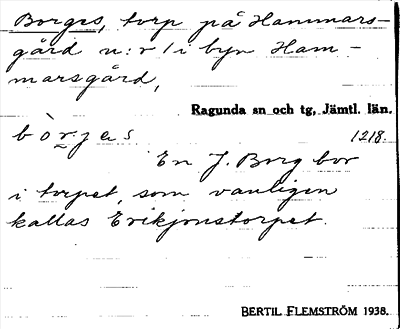 Borges, torp på Hammars-
gård n:r 1 i byn Ham-
marsgård,
Ragunda sn och tg, Jämtl. län.
bòrjes 1218.
En J. Borg bor
i torpet, som vanligen
kallas Erikjonstorpet.
BERTIL FLEMSTRÖM 1938.